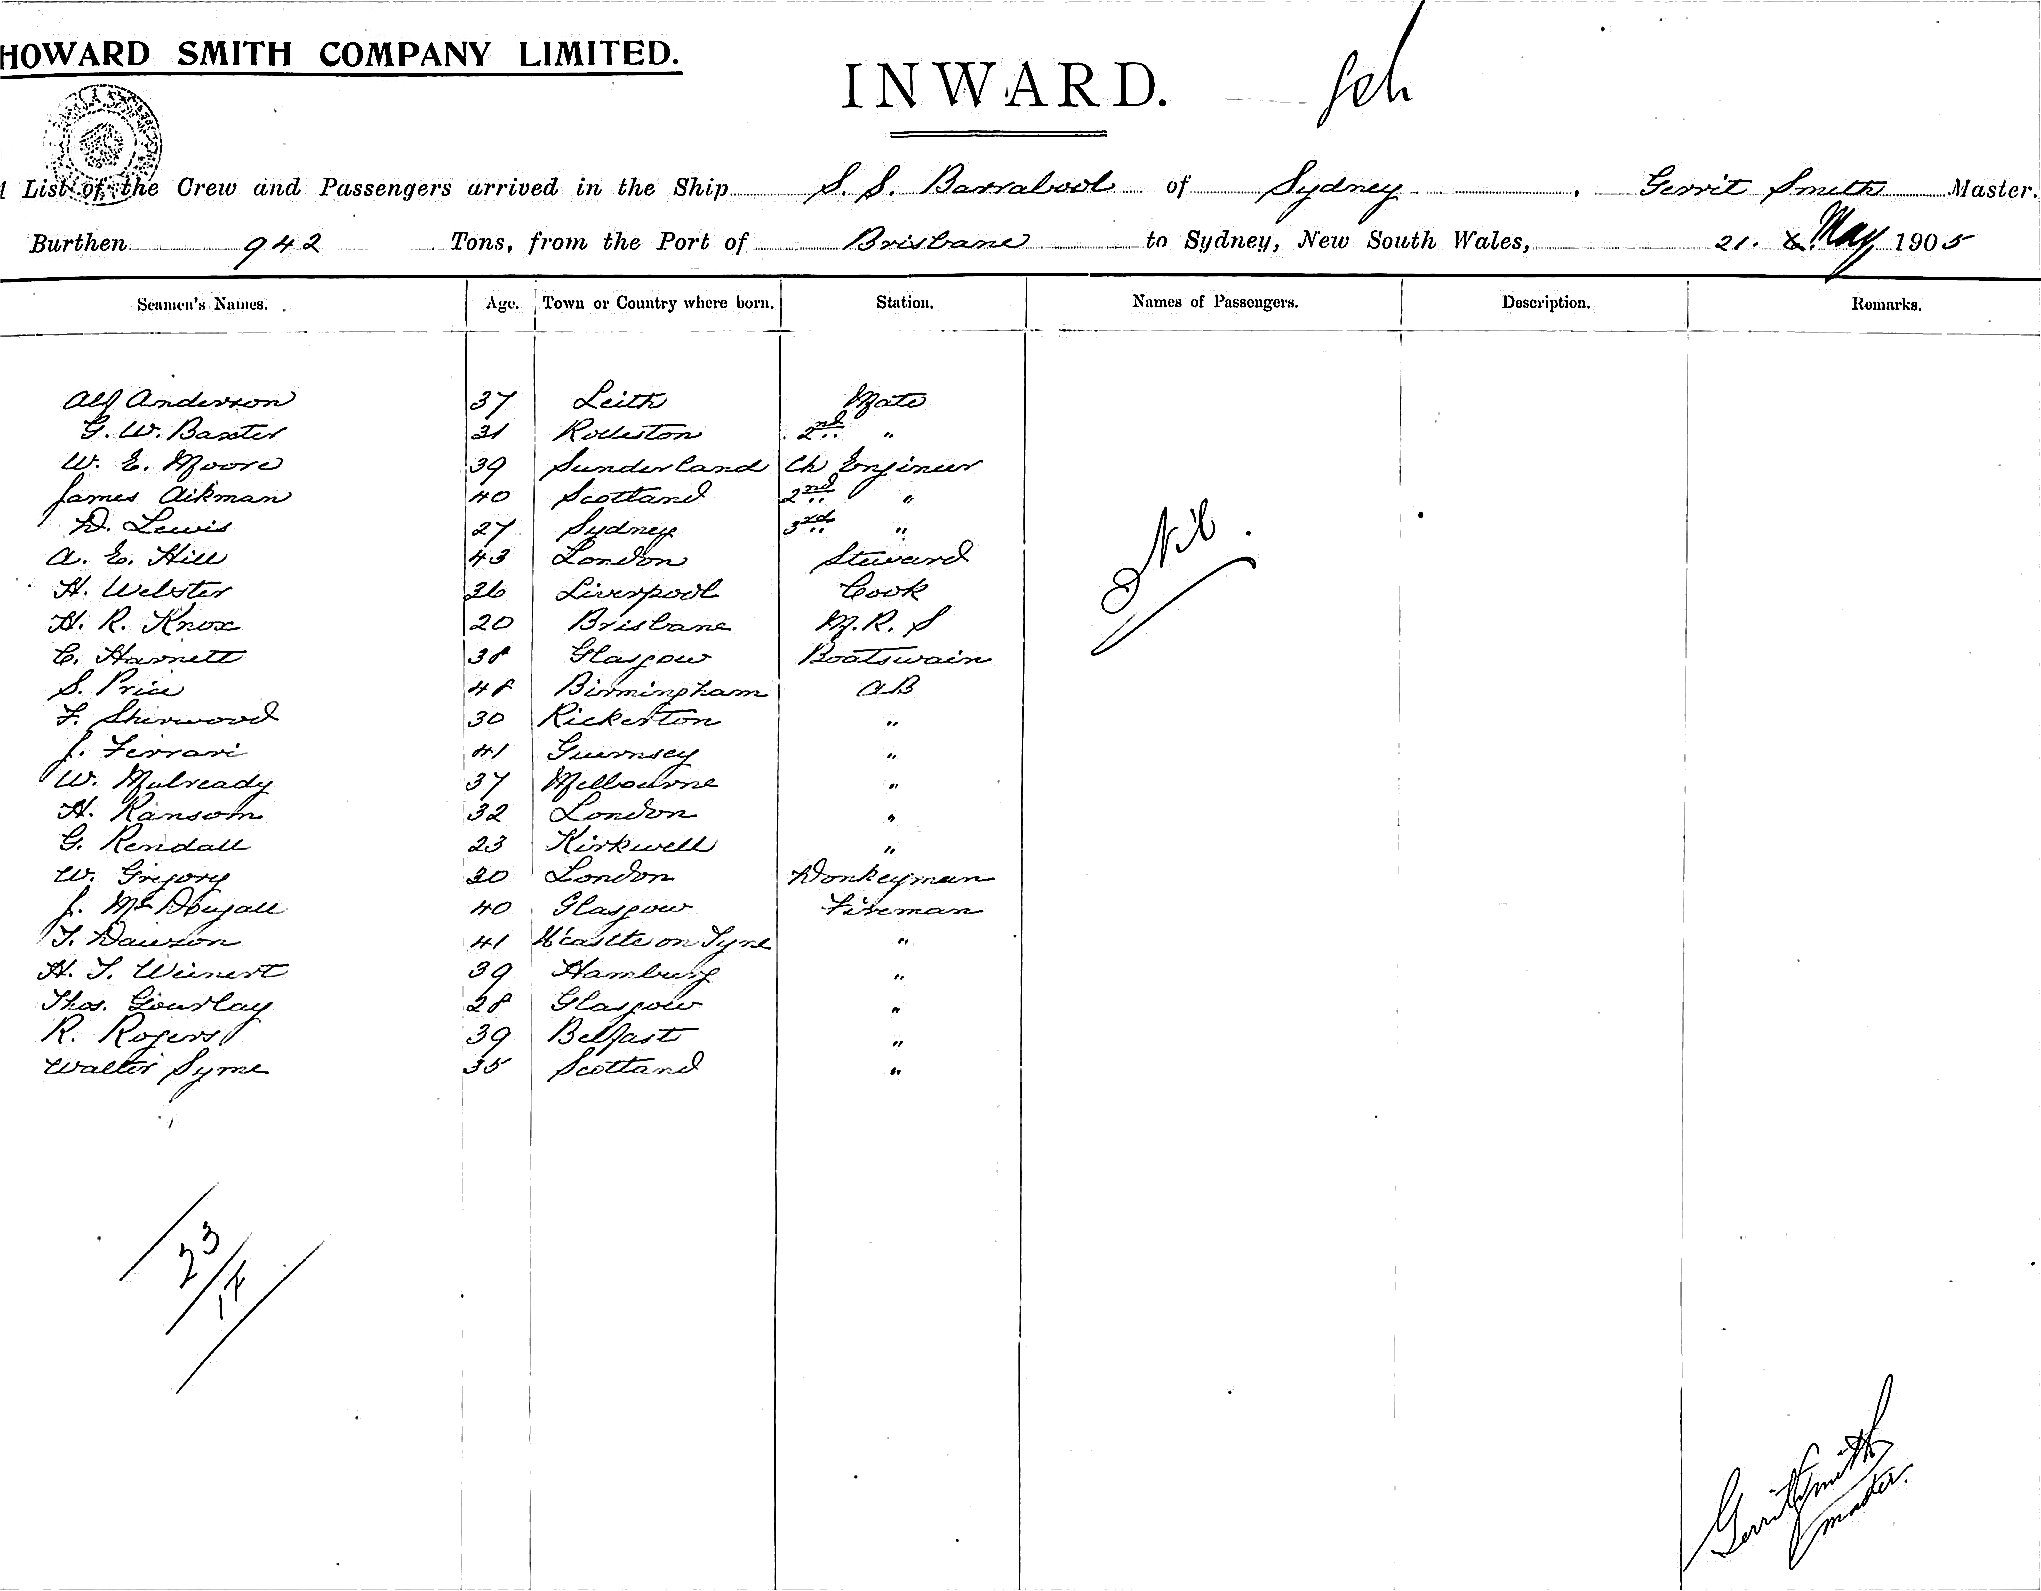 HOWARD SMITH COMPANY LIMITED.
INWARD.
List of the Crew and Passengers arrived in the Ship S. S. Barrabool of Sydney, Gerrit Smith Master.
Burthen 942 Tons, from the Port of Brisbane to Sydney, New South Wales, 21. May 1905
Seamen's Names. Age. Town or Country where born. Station. Names of Passengers. Description. Remarks.
Alf Anderson 37 Leith Mate
G. W. Baxter 31 Rolleston 2nd "
W. E. Moore 39 Sunderland Ch Engineer
James Aikman 40 Scotland 2nd "
D. Lewis 27 Sydney 3rd "
A. E. Hill 43 London Steward
H. Webster 26 Liverpool Cook
H. R. Knox 20 Brisbane M. R. S
C. Harnett 38 Glasgow Boatswain
S. Price 48 Birmingham AB
F. Sherwood 30 Rickerton "
J. Ferrari 41 Guernsey "
W. Mulready 37 Melbourne "
H. Ransom 32 London "
G. Rendall 23 Kirkwell "
W. Gregory 30 London Donkeyman
J. McDougall 40 Glasgow Fireman
T. Dawson 41 N'castle on Tyne "
H. T. Weinert 39 Hamburg "
Thos. Gourlay 28 Glasgow "
R. Rogers 39 Belfast "
Walter Syme 35 Scotland "
Nil.
23
Gerrit Smith
master.